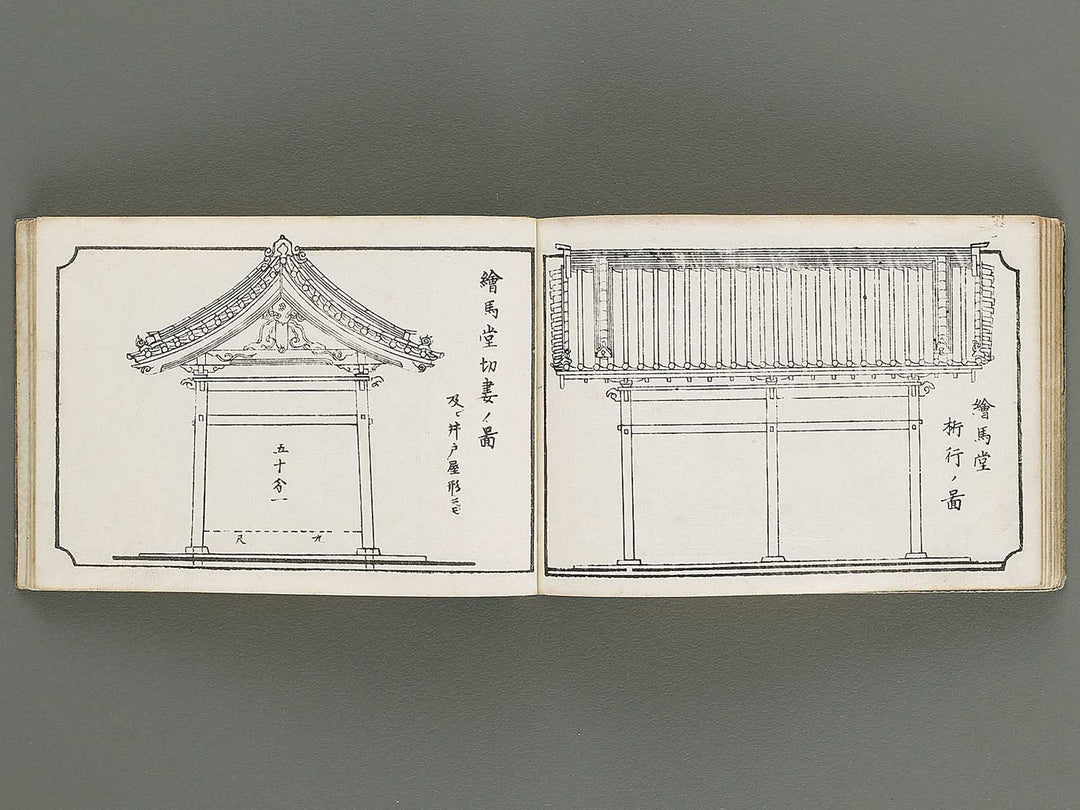 繪馬堂
桁行ノ圖
繪馬堂切妻ノ圖
及ヒ井戸屋形ニモ
五十分一
九尺